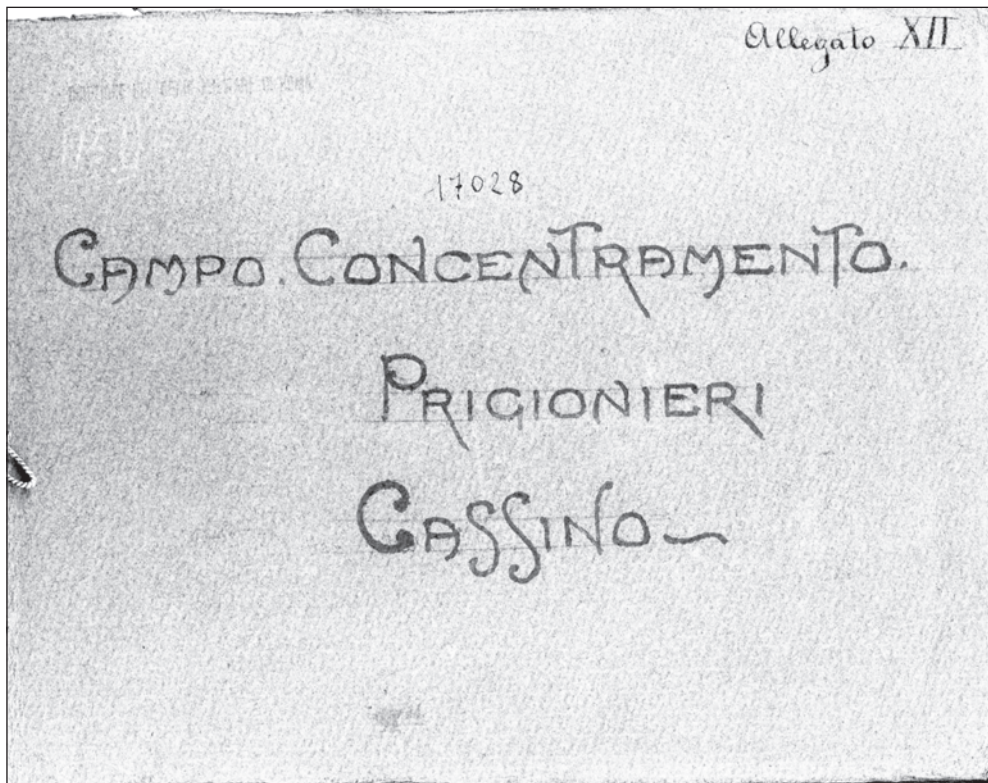 Allegato XII
17028
CAMPO. CONCENTRAMENTO.
PRIGIONIERI
CASSINO